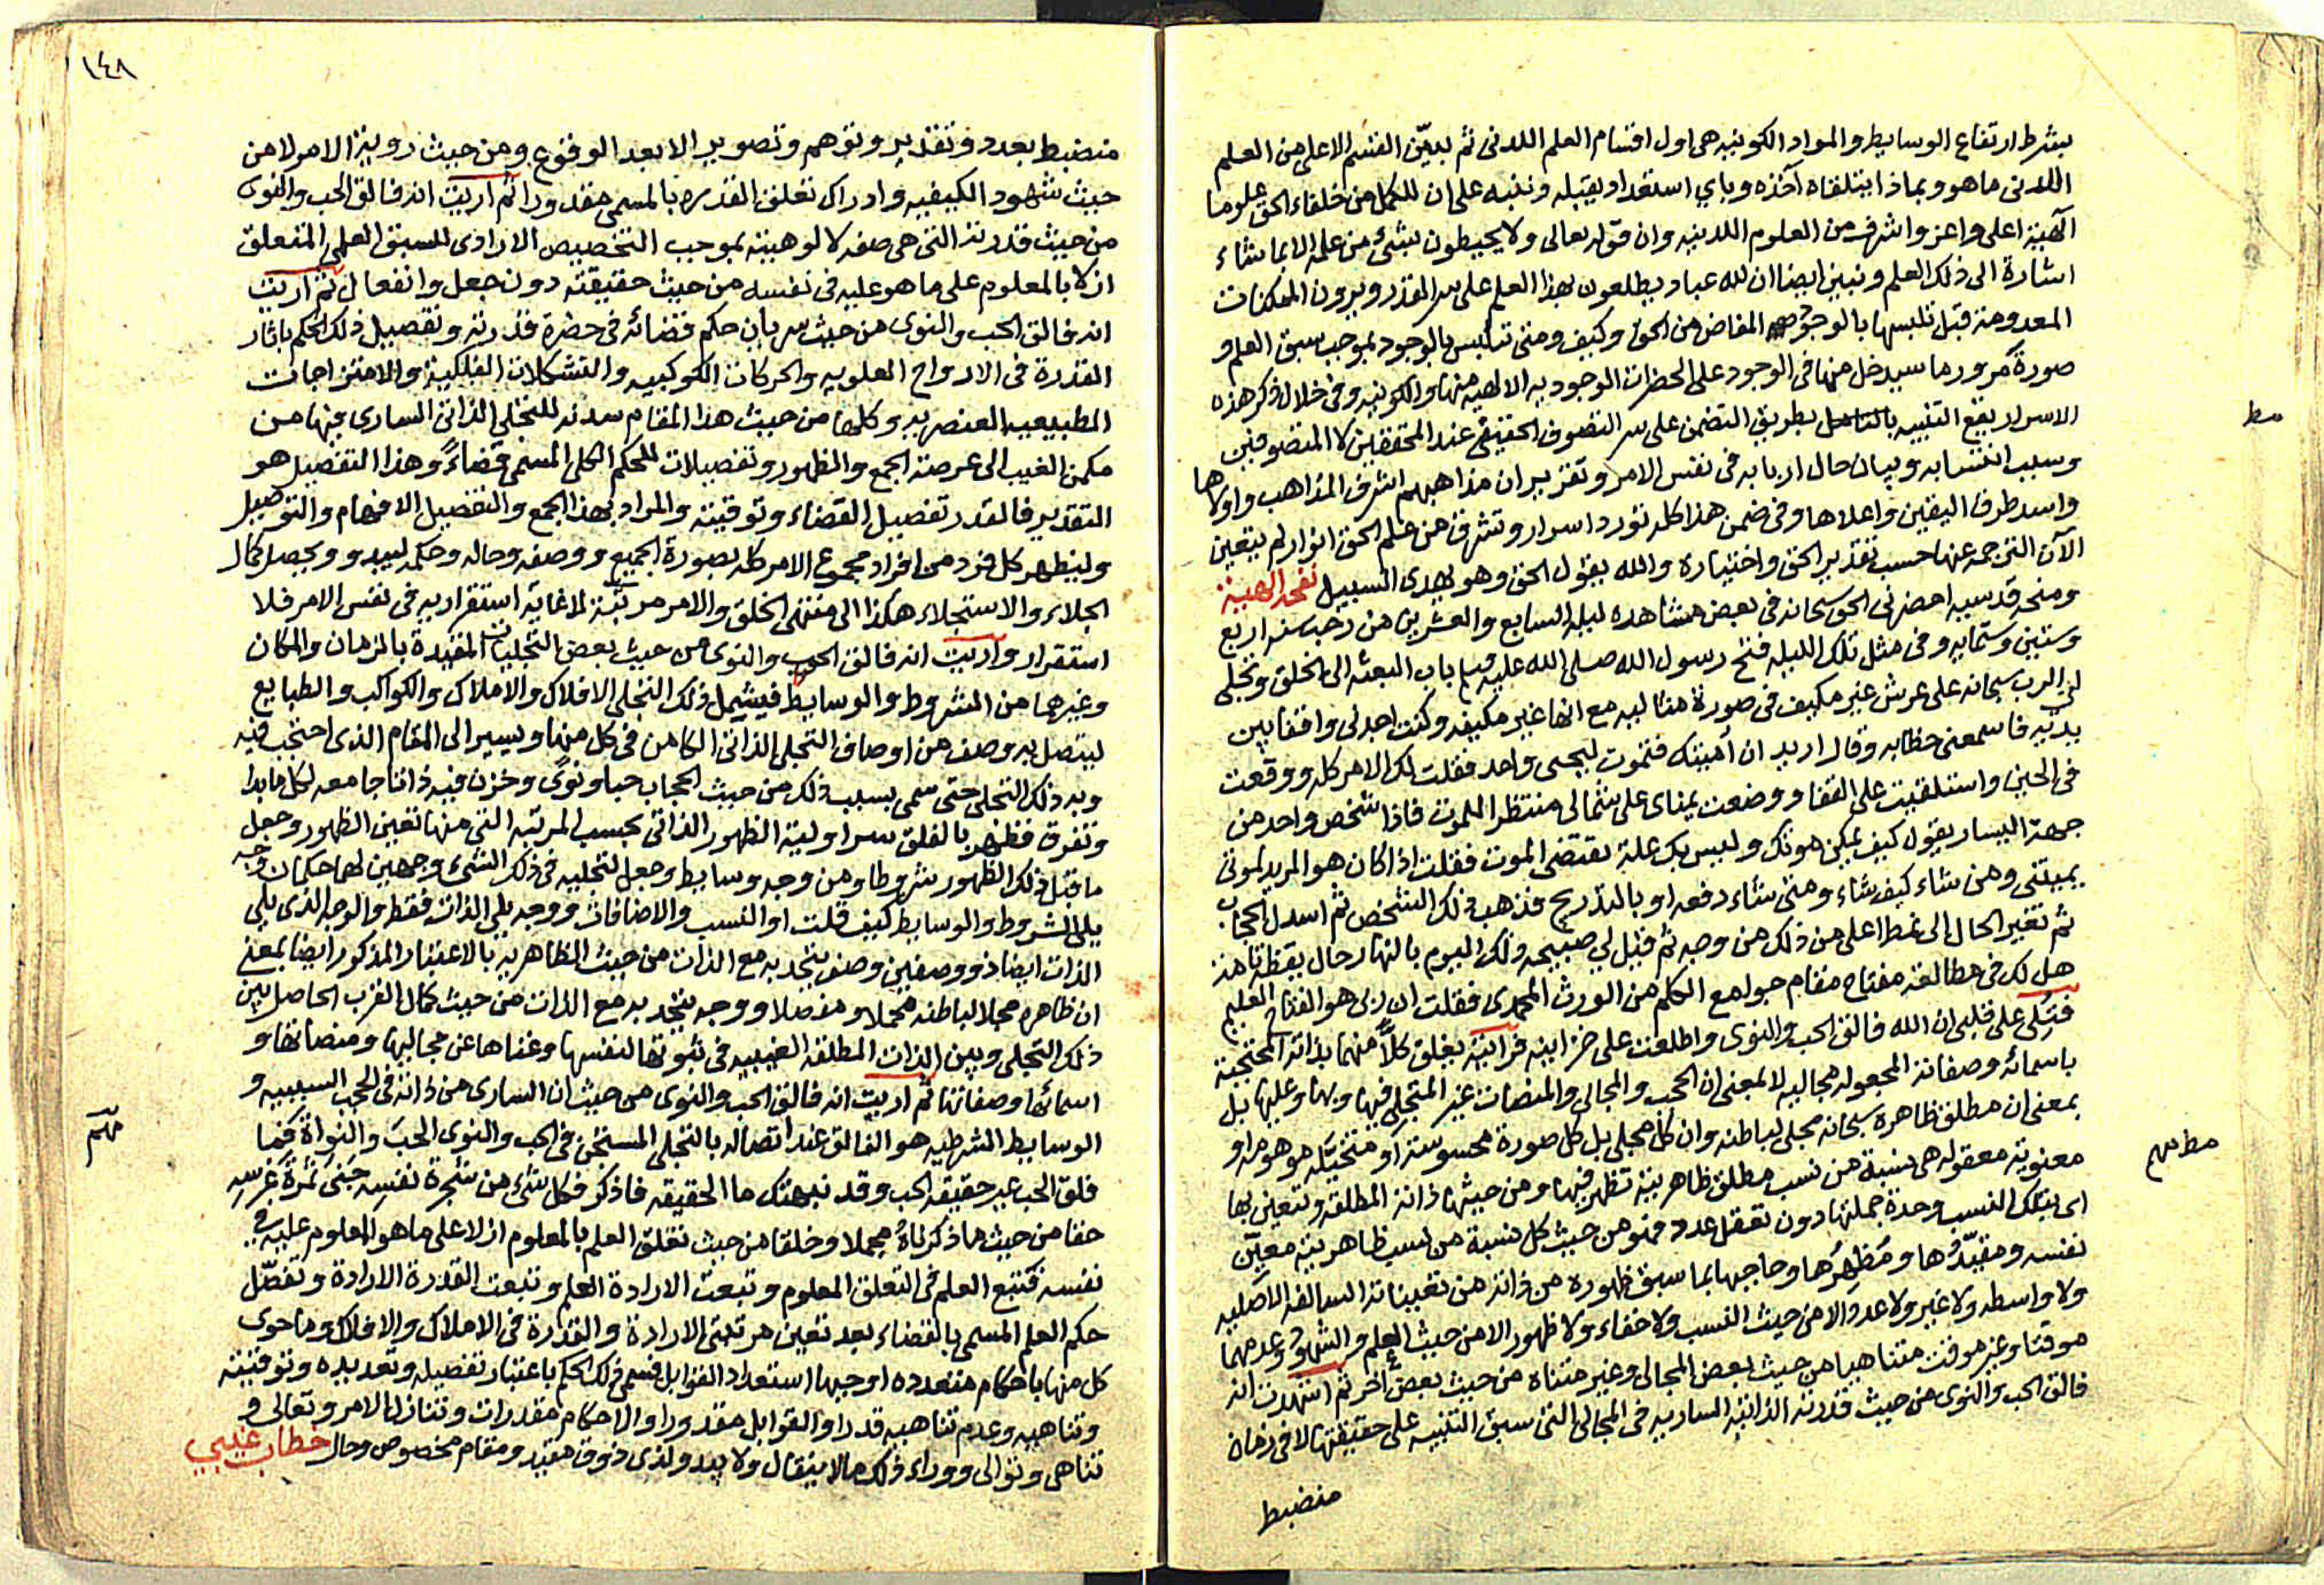 بشرط ارتفاع الوسايط والمواد الكونيه هى اول اقسام العلم اللدنى ثم يبيّن القسم الاعلى من العلم
اللدنى ما هو وبماذا يتلقاه آخذه وباي استعداد يقبله وننبه على ان للكمل من خلفاء الحق علوما
آلهية اعلى واعز واشرف من العلوم اللدنيه وان قوله تعالى ولا يحيطون بشئ من علمه الا بما شاء
اشارة الى ذلك العلم ونبين ايضا ان لله عباد يطلعون بهذا العلم على سر القدر ويرون الممكنات
المعدومة قبل تلبسها بالوجود المفاض من الحق وكيف ومتى تتلبس بالوجود بموجب سبق العلم و
صورة مرور ما سيدخل منها فى الوجود على الحضرات الوجوديه الالهيه منها والكونيه وفى خلال ذكر هذه
الاسرار يقع التنبيه بطريق التضمن على سر التصوف الحقيقى عند المحققين لا المتصوفين
وسبب انتشابه وبيان حال اربابه فى نفس الامر وتقرير ان مذاهبهم اشرف المذاهب واولاها
واسد طرف اليقين واعلاها وفى ضمن هذا كله تورد اسرار وتشرق من علم الحق انوار لم يتعين
الآن الترجمه عنها حسب تقدير الحق واختياره والله يقول الحق وهو يهدى السبيل نفحه الهية
ومنحه قدسيه احضرنى الحق سبحانه فى بعض مشاهده ليله السابع والعشرين من رجب سنه اربع
وستين وستمايه وفى مثل تلك الليله فتح رسول الله صلى الله عليه باب البعثه الى الخلق وتجلى
لي الرب سبحانه على عرش غير مكيف فى صورة مثاليه مع انها غير مكيفه وكنت اجدنى واقفا بين
يديه فاسمعنى خطابه وقال اريد ان أميتك فتموت ليحيى واحد فقلت لك الامر كله ووقعت
فى الحين واستلقيت على القفا ووضعت يمناى على شمالى منتظرا للموت فاذا شخص واحد من
جهة اليسار يقول كيف يمكن موتك وليس بك علة تقتضى الموت فقلت اذا كان هو المريد لموتى
يميتنى ومن شاء كيف شاء ومتى شاء دفعه او بالتدريج فذهب ذلك الشخص ثم اسدل الحجاب
ثم تغير الحال الى نمط اعلى من ذلك من وجه ثم قيل لي صبيحه ذلك اليوم بالنهار حال يقظه تامه
هل لك فى مطالعة مفتاح مقام جوامع الكلم من الورث المحمدى فقلت ان ربى هو الفتاح العليم
فتُلى على قلبى ان الله فالق الحب والنوى واطلعت على خزاينه فرأيته يفلق كلًّا منهما بذاته المحتجبة
باسمائه وصفاته المجعوله مجاليه لا بمعنى ان الحجب والمجالى والمنصات غير المتجلى فيها وبها وعليها بل
بمعنى ان مطلق ظاهره سبحانه مجلى لباطنه وان كل مجلى بل كل صورة محسوسة او متخيّله موهومه او
معنوية معقوله هى نسبة من نسب مطلق ظاهريته تظهر فيها ومن حيثها ذاته المطلقه وتتعين بها
اى بتلك النسب وحدة جملتها دون تعقل عدد فهو من حيث كل نسبة من نسب ظاهريته معيّن
نفسه ومقيّدُها ومُظهِرُها وحاجبها بما سبق ظهوره من ذاته من تعييناته السالفه الاصليه
ولا واسطه ولا غير ولا عدد الا من حيث النسب ولا خفاء ولا ظهور الا من حيث العلم والشهود وعدمهما
موقتا وغير موقت متناهيا من حيث بعض المجالى وغير متناه من حيث بعض آخر ثم اشهدت انه
فالق الحب والنوى من حيث قدرته الذاتية الساريه فى المجالى التى سبق التنبيه على حقيقتها لا فى زمان
منضبط
مط
مط مهم
١٤٨
منضبط بعدد وتقدير وتوهم وتصوير الا بعد الوقوع ومن حيث روية الامر لا من
حيث شهود الكيفيه وادراك تعلق القدره بالمسمى مقدورا ثم اريت انه فالق الحب والنوى
من حيث قدرته التى هى صفه لالوهيته بموجب التخصيص الارادى للسبق العلمى المتعلق
ازلا بالمعلوم على ما هو عليه فى نفسه من حيث حقيقته دون جعل وانفعال ثم اريت
انه فالق الحب والنوى من حيث سريان حكم قضائه فى حضرة قدرته وتفصيل ذلك الحكم باثار
القدرة فى الارواح العلويه والحركات الكوكبيه والتشكلات الفلكية والامتزاجات
الطبيعيه العنصريه وكلها من حيث هذا المقام سدنه للتجلى الذاتى السارى فيها من
مكمن الغيب الى عرصة الجمع والظهور وتفصيلات للحكم الكلى المسمى قضاءً وهذا التفصيل هو
التقدير فالقدر تفصيل القضاء وتوقيته والمراد بهذا الجمع والتفصيل الافهام والتوصيل
وليظهر كل فرد من افراد مجموع الامر كله بصورة الجميع ووصفه وحاله وحكمه ليبدو ويحصل كمال
الجلاء والاستجلاء هكذا الى منتهى الخلق والامر مرتبة لا غاية استقراريه فى نفس الامر فلا
استقرار واريت انه فالق الحب والنوى من حيث بعض التجليات المقيدة بالزمان والمكان
وغيرهما من الشروط والوسايط فيشمل ذلك التجلى الافلاك والاملاك والكواكب والطبايع
ليتصل به وصف من اوصاف التجلى الذاتى الكامن فى كل منها ويسير الى المقام الذى احتجب فيه
وبه ذلك التجلى حتى سمى بسبب ذلك من حيث الحجاب حبا ونوىً وخزن فيه ذاتا جامعه لكل ما بدا
وتفرق فظهر بالفلق سر اولية الظهور الذاتى بحسب المرتبه التى منها تعين الظهور وجعل
ما قبل ذلك الظهور شروطا ومن وجه وسايط وجعل لتجليه فى ذلك الشئ وجهين لهما حكمان وجه
يلى الشروط والوسايط كيف قلت او النسب والاضافات ووجه يلى الذات فقط والوجه الذى يلى
الذات ايضا ذو وصفين وصف يتحد به مع الذات من حيث الظاهريه بالاعتبار المذكور ايضا بمعنى
ان ظاهره مجلا لباطنه مجملا ومفصلا ووجه يتحد به مع الذات من حيث كمال القرب الحاصل بين
ذلك التجلى وبين الذات المطلقه الغيبيه فى ثبوتها لنفسها وغناها عن مجاليها ومنصاتها و
اسمائها وصفاتها ثم اريت انه فالق الحب والنوى من حيث ان السارى من ذاته فى الحجب السببيه و
الوسايط الشرطيه هو الفالق عند اتصاله بالتجلى المستجن فى الحب والنوى الحبَ والنواةَ فما
فلق الحب غير حقيقه الحب وقد نبهتك ما الحقيقه فاذكر فكل شئ من شجرة نفسه جَنى ثمرة غرسه
حقا من حيث ما ذكرناهُ مجملا وخلقا من حيث تعلق العلم بالمعلوم ازلا على ما هو المعلوم عليه فى
نفسه فتبع العلم فى التعلق المعلوم وتبعت الارادة العلم وتبعت القدرة الارادة وتفصّل
حكم العلم المسمى بالقضاء بعد تعين مرتبتى الارادة والقدرة فى الاملاك والافلاك وما حوى
كل منها باحكام متعدده اوجبها استعداد القوابل فسمى ذلك الحكم باعتبار تفصيله وتعديده وتوقيته
وتناهيه وعدم تناهيه قدرا والقوابل مقدورا والاحكام مقدرات وتنازل الامر وتعالى و
تناهى وتوالى ووراء ذلك ما لا ينقال ولا يبدو لذى ذوق مقيد ومقام مخصوص وحال خطاب غيبي
مهم